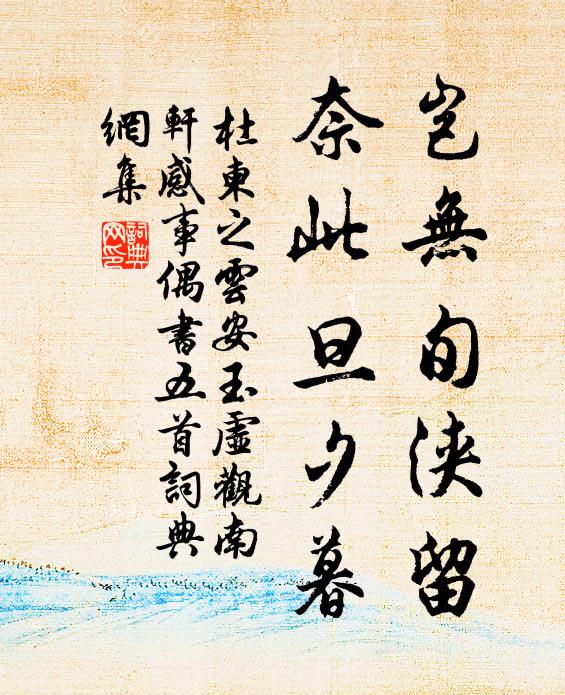 豈無旬浹留
奈此旦夕暮
杜東之雲安玉虛觀南
軒感事偶書五首詞典
網集
詞典
网印